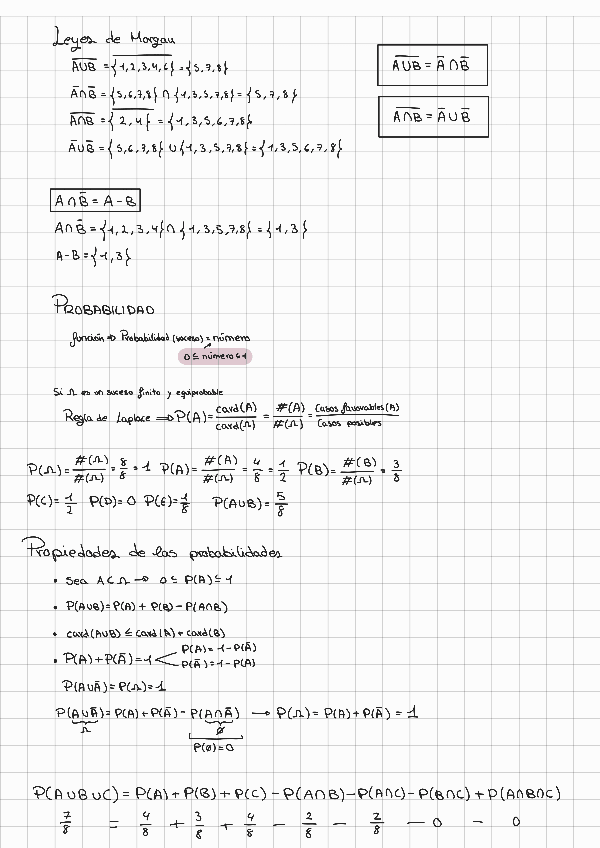 Leyes de Morgan
A∪B̅ = {1,2,3,4,6}̅ = {5,7,8}
A̅∩B̅ = {5,6,7,8} ∩ {1,3,5,7,8} = {5,7,8}
A∩B̅ = {2,4}̅ = {1,3,5,6,7,8}
A̅∪B̅ = {5,6,7,8} ∪ {1,3,5,7,8} = {1,3,5,6,7,8}
A∪B̅ = A̅∩B̅
A∩B̅ = A̅∪B̅
A∩B̅ = A-B
A∩B̅ = {1,2,3,4} ∩ {1,3,5,7,8} = {1,3}
A-B = {1,3}
PROBABILIDAD
función ⇒ Probabilidad (suceso) = número
0 ≤ número ≤ 1
Si Ω es un suceso finito y equiprobable
Regla de Laplace ⇒ P(A) = card(A)/card(Ω) = #(A)/#(Ω) = Casos favorables(A)/Casos posibles
P(Ω) = #(Ω)/#(Ω) = 8/8 = 1 P(A) = #(A)/#(Ω) = 4/8 = 1/2 P(B) = #(B)/#(Ω) = 3/8
P(C) = 1/2 P(D) = 0 P(E) = 1/8 P(A∪B) = 5/8
Propiedades de las probabilidades
• Sea A⊂Ω → 0 ≤ P(A) ≤ 1
• P(A∪B) = P(A) + P(B) - P(A∩B)
• card(A∪B) ≤ card(A) + card(B)
• P(A) + P(A̅) = 1
P(A) = 1 - P(A̅)
P(A̅) = 1 - P(A)
P(A∪A̅) = P(Ω) = 1
P(A∪A̅) = P(A) + P(A̅) - P(A∩A̅) → P(Ω) = P(A) + P(A̅) = 1
Ω ∅
P(∅) = 0
P(A∪B∪C) = P(A) + P(B) + P(C) - P(A∩B) - P(A∩C) - P(B∩C) + P(A∩B∩C)
7/8 = 4/8 + 3/8 + 4/8 - 2/8 - 2/8 - 0 - 0